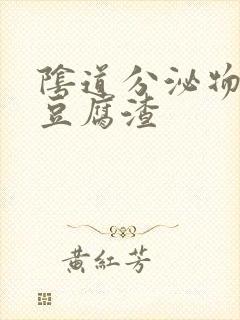 陰道分泌物
豆腐渣
黃紅芳